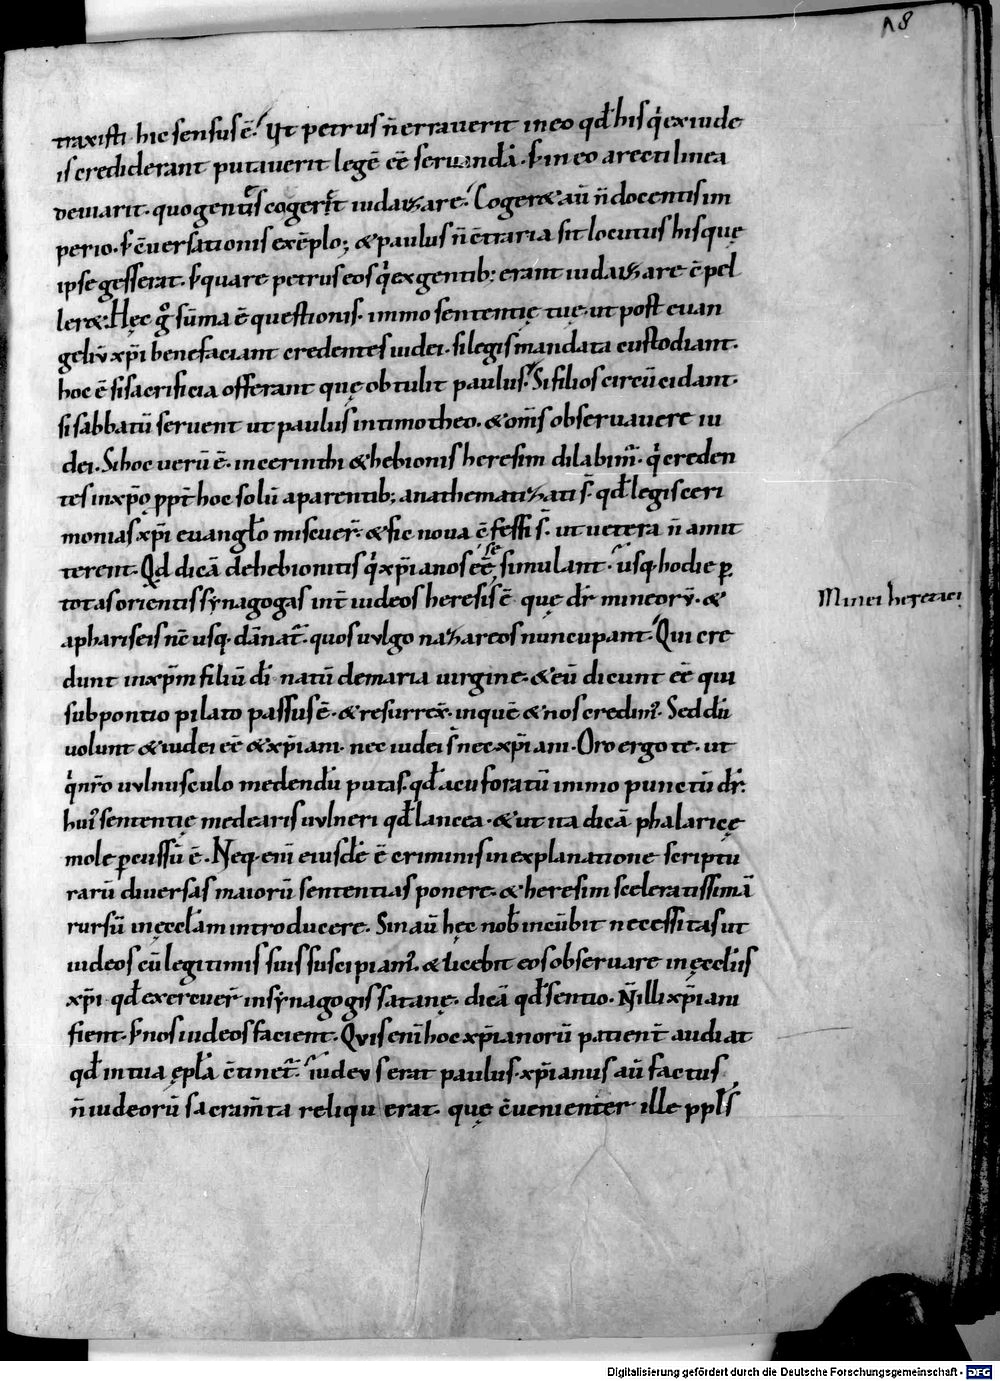 18
traxisti hic sensus ē. Ut petrus n̄ erraverit in eo qđ his q̇ ex iude
is crediderant putaverit legē eē servandā. s; in eo a recti linea
deviarit. quo gentes cogeret iudaizare. Cogeret aū n̄ docentis im
perio. s; c̄versationis exēplo; & paulus n̄ c̄traria sit locutus his quę
ipse gesserat. s; quare petrus eos q̇ ex gentib; erant iudaizare c̄pel
leret. Hęc g̊ sūma ē questionis. immo sententię tuę. ut post evan
geliū xp̄i bene faciant credentes iudei. si legis mandata custodiant.
hoc ē si sacrificia offerant quę obtulit paulus. Si filios circūcidant.
si sabbatū servent ut paulus in timotheo. & om̄s observavere iu
dei. Si hoc verū ē. in cerinthi & hebionis heresim dilabim̄. q̇ creden
tes in xp̄o ꝓpt̄ hoc solū a parentib; anathematizati s̄. qđ legis ceri
monias xp̄i evangł̄o miscuer̄. & sic nova c̄fessi s̄. ut vetera n̄ amit
terent. Qđ dicā de hebionitis q̇ xp̄ianos eē se simulant. usq; hodie ꝑ
totas orientis synagogas int̄ iudeos heresis ē quę dr̄ mineorꝝ. &
a phariseis nc̄ usq; dānat̄. quos vulgo nazareos nuncupant. Qui cre
dunt in xp̄m filiū dī natū de maria virgine. & eū dicunt eē qui
sub pontio pilato passus ē. & resurrex̄. in quē & nos credim̄. Sed dū
volunt & iudei eē & xp̄iani. nec iudei s̄ nec xp̄iani. Oro ergo te. ut
q̇ nr̄o vulnusculo medendū putas. qđ acu foratū immo punctū dr̄.
hui᾿ sententię medearis vulneri qđ lancea. & ut ita dicā phalaricę
mole ꝑcussū ē. Neq; eni eiusdē ē criminis in explanatione scriptu
rarū diversas maiorū sententias ponere. & heresim sceleratissimā
rursū in ęccl̄am introducere. Sin aū hęc nob̄ incūbit necessitas ut
iudeos cū legitimis suis suscipiam᾿. & licebit eos observare in ęccl̄iis
xp̄i qđ exercuer̄ in synagogis satanę. dicā qđ sentio. N̄ illi xp̄iani
fient. s; nos iudeos facient. Quis eni hoc xp̄ianorū patient̄ audiat
qđ in tua ępl̄a c̄tinet̄. iudeus erat paulus. xp̄ianus aū factus.
n̄ iudeorū sacram̄ta reliquerat. quę c̄venienter ille ppl̄s
Minei heretici
Digitalisierung gefördert durch die Deutsche Forschungsgemeinschaft - DFG